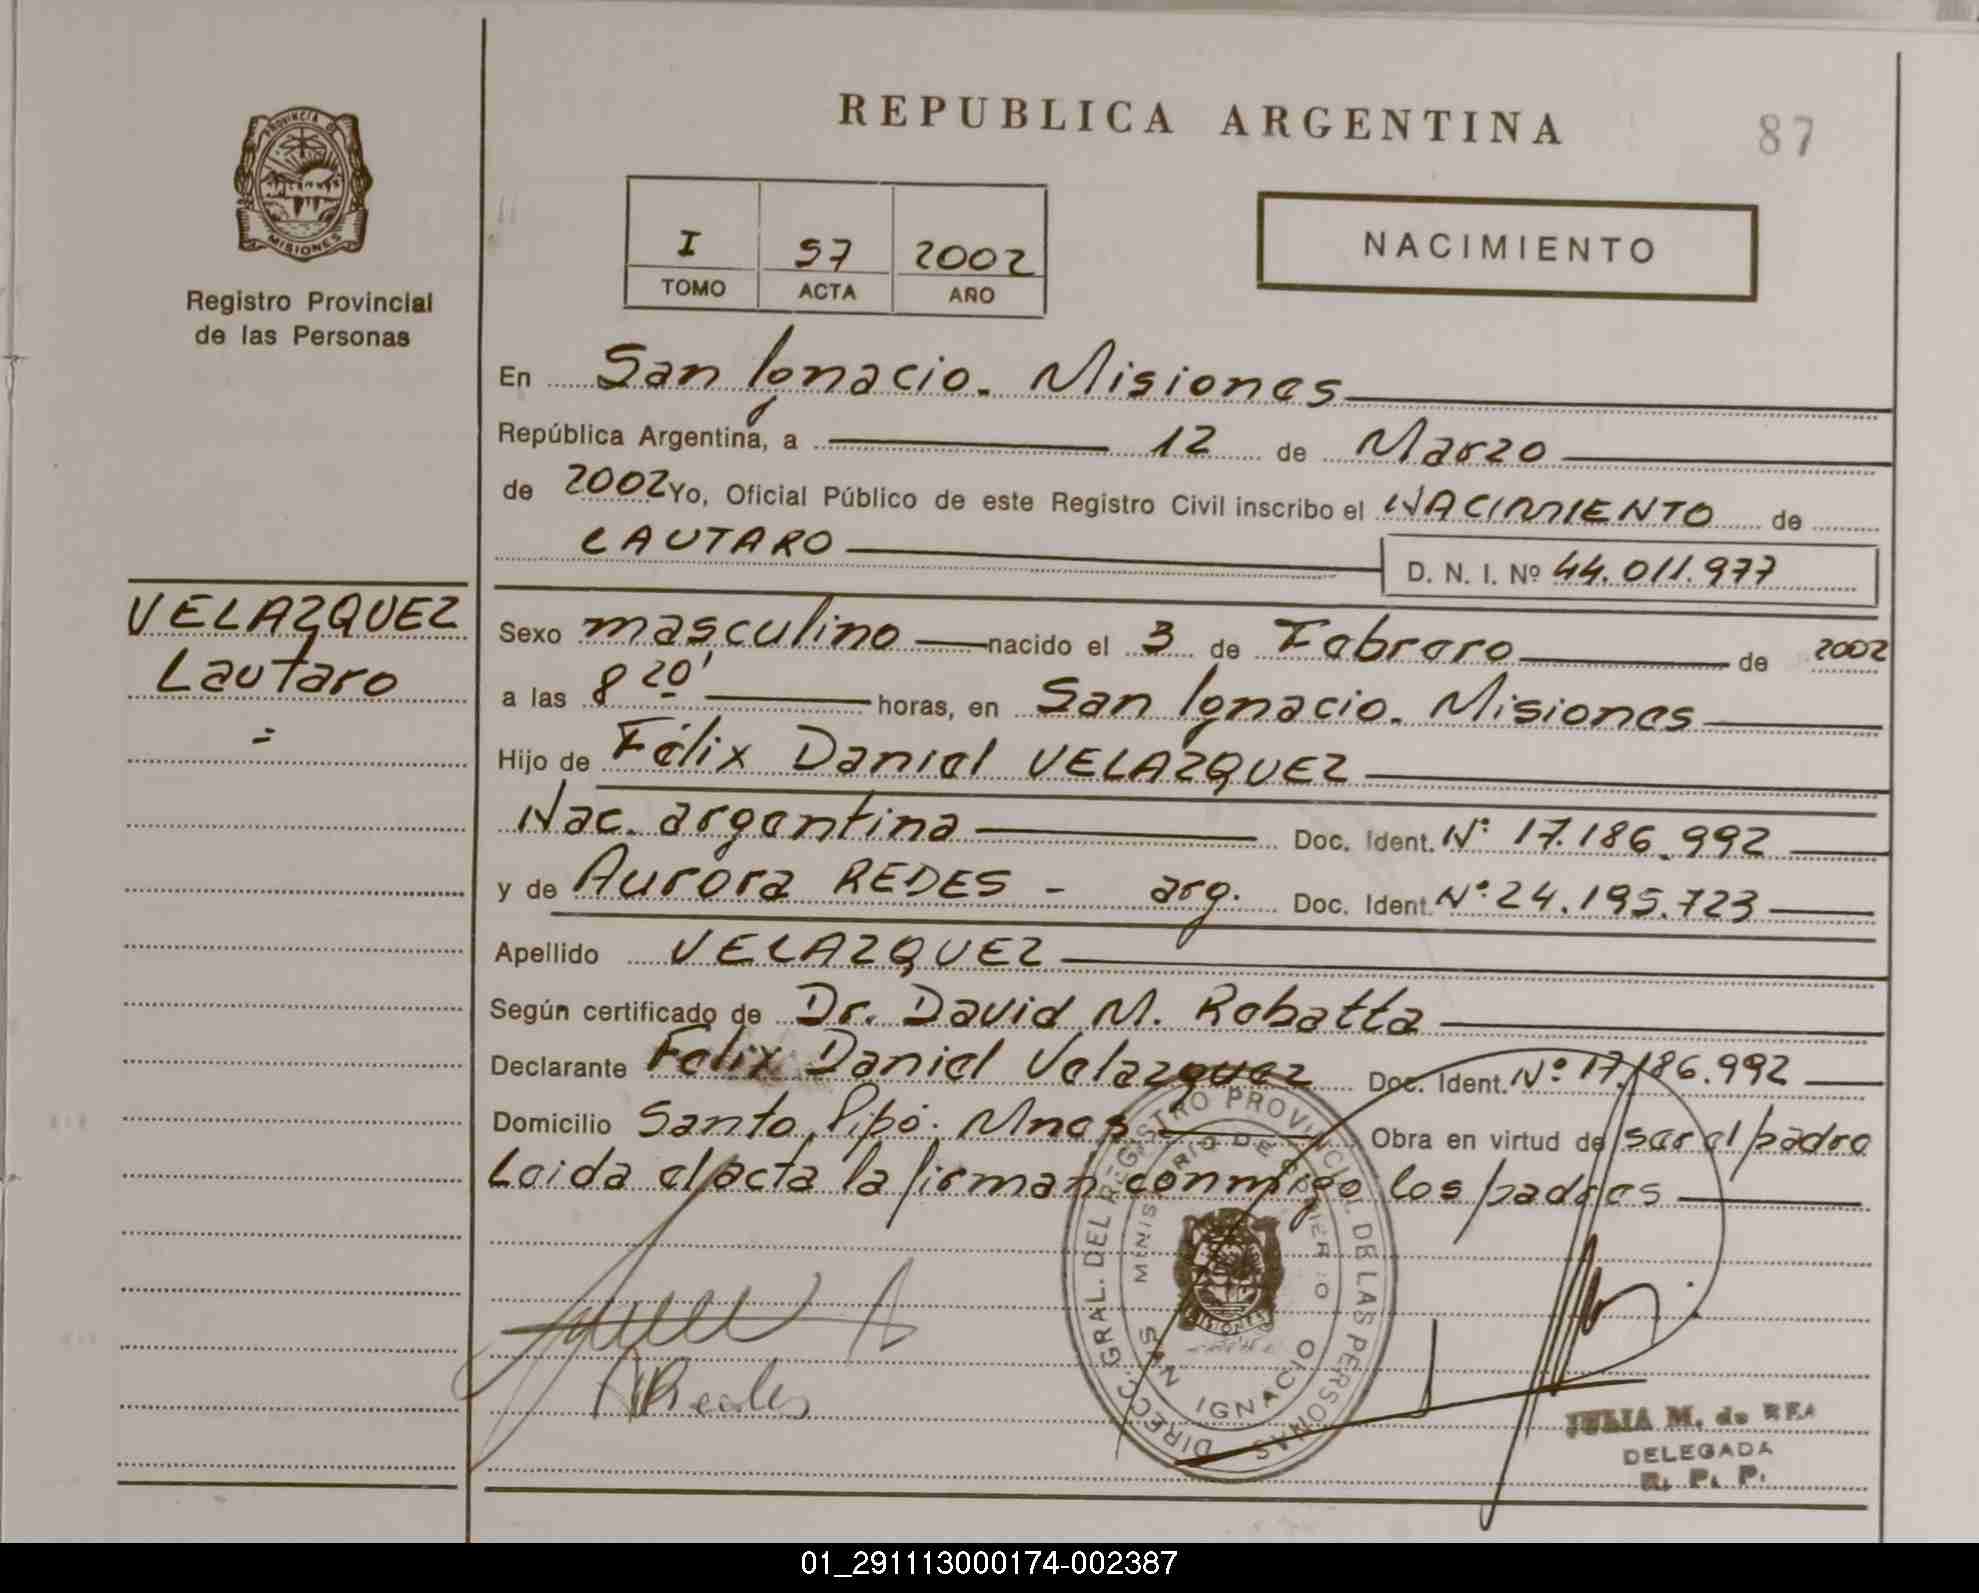 REPUBLICA ARGENTINA
87
PROVINCIA DE
MISIONES
Registro Provincial
de las Personas
I 57 2002
TOMO ACTA AÑO
NACIMIENTO
En San Ignacio. Misiones
República Argentina, a 12 de Marzo
de 2002 Yo, Oficial Público de este Registro Civil inscribo el NACIMIENTO de
LAUTARO
D. N. I. Nº 44.011.977
VELAZQUEZ
Lautaro
=
Sexo masculino nacido el 3 de Febrero de 2002
a las 8 20' horas, en San Ignacio. Misiones
Hijo de Félix Daniel VELAZQUEZ
Nac. argentina Doc. Ident. Nº 17.186.992
y de Aurora REDES - arg. Doc. Ident. Nº 24.195.723
Apellido VELAZQUEZ
Según certificado de Dr. David M. Robatta
Declarante Felix Daniel Velazquez Doc. Ident. Nº 17.186.992
Domicilio Santo Pipó. Mnes Obra en virtud de ser el padre
Leida el acta la firman conmigo los padres
DIRECC. GRAL. DEL REGISTRO PROVINCIAL DE LAS PERSONAS
MINISTERIO DE GOBIERNO
SAN IGNACIO
MISIONES
JULIA M. de REA
DELEGADA
R. P. P.
01_291113000174-002387